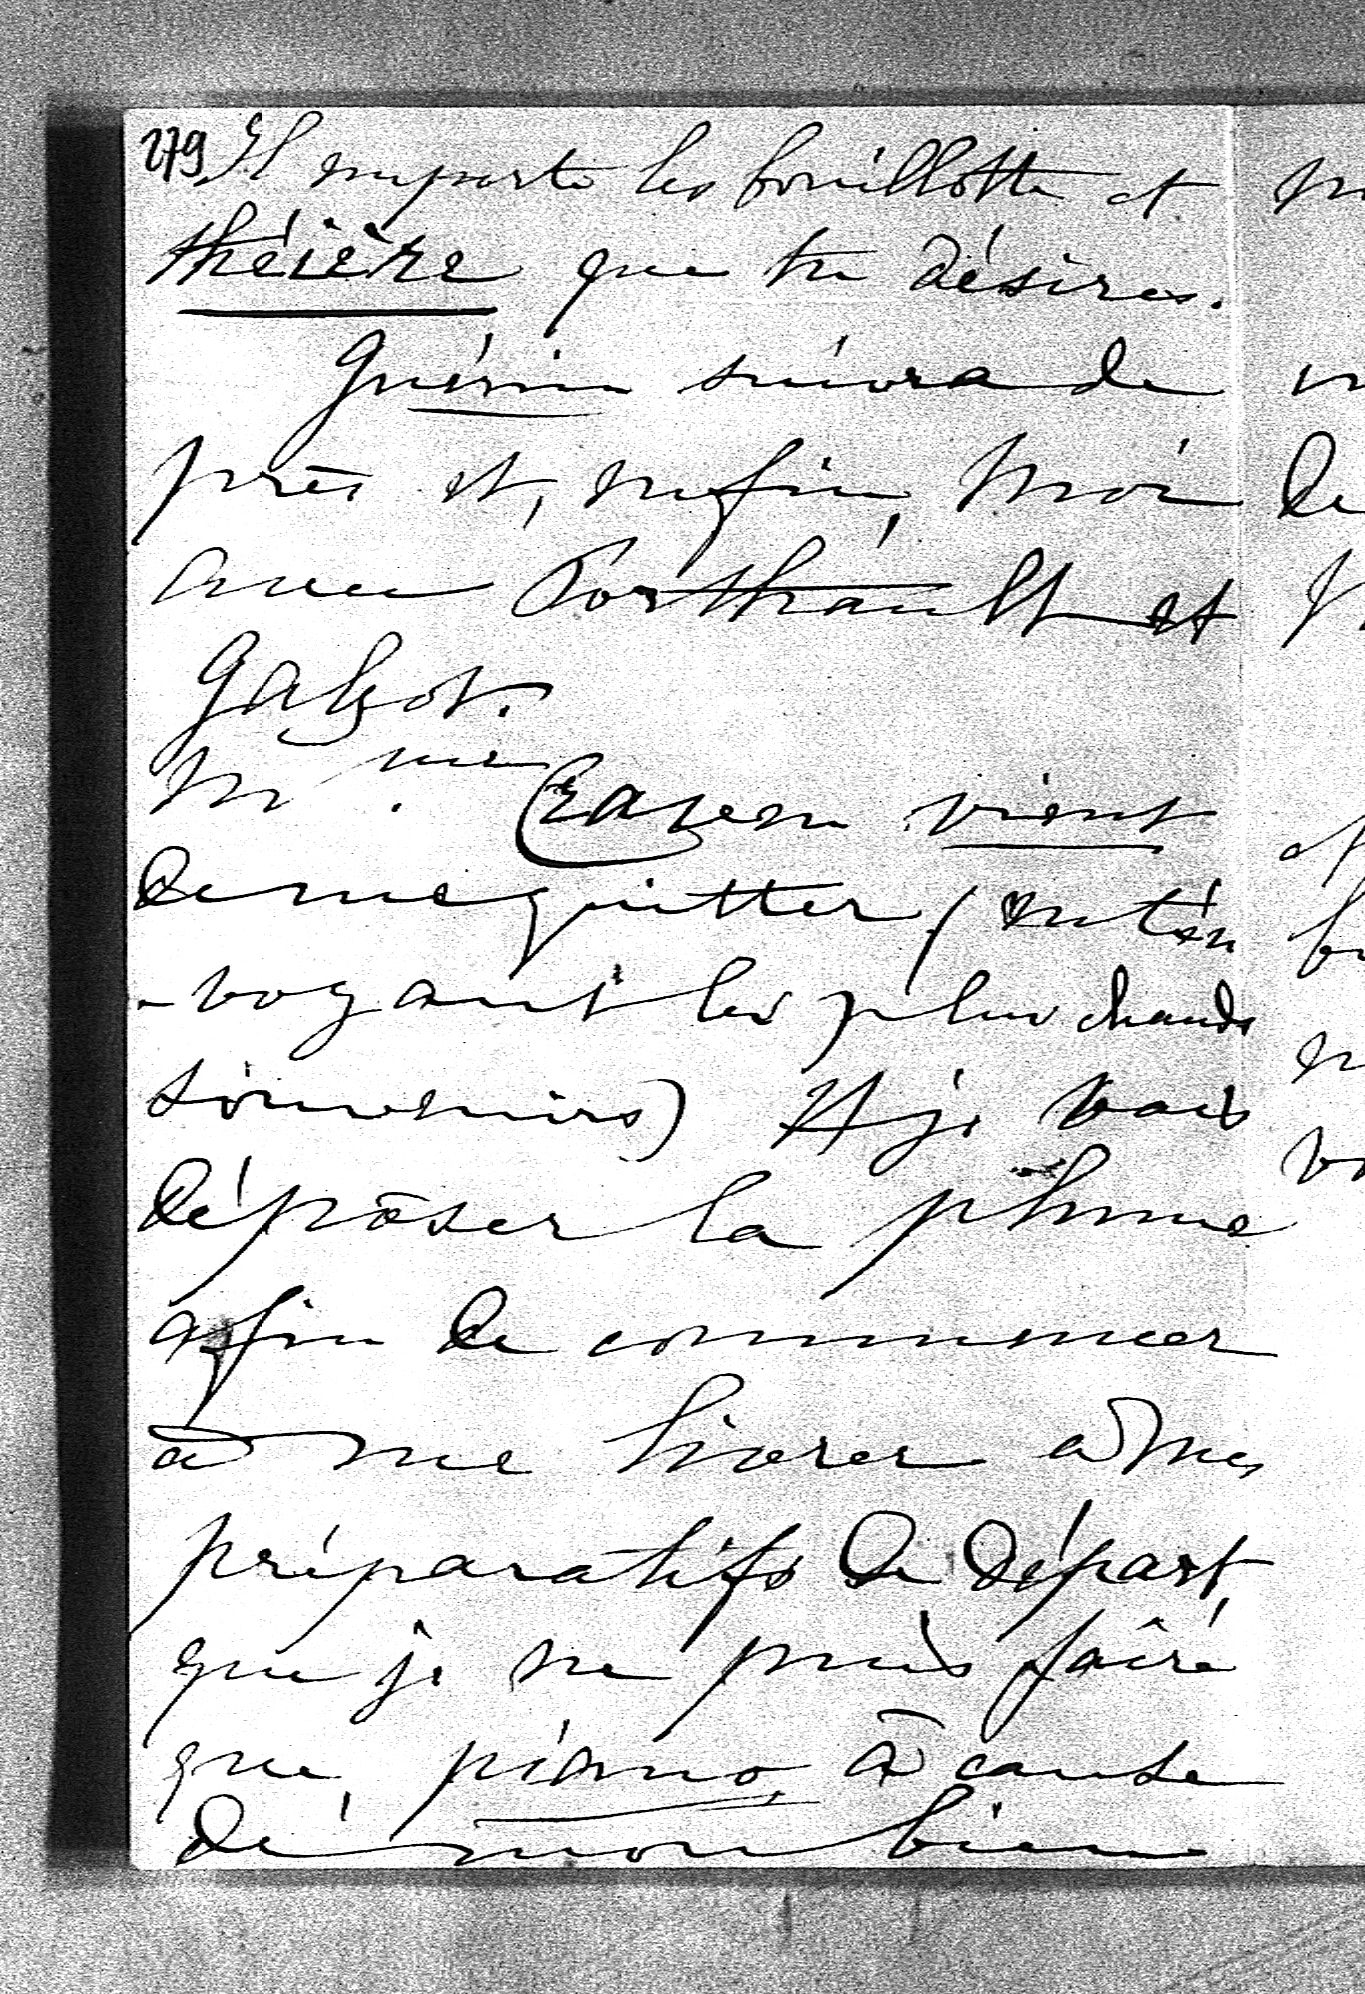 279 Il emporte les bouillotte et
théière que tu désires.
Guérin suivra de
près et, enfin, moi
avec Porthault et
Galzot.
Mme Cazen vient
de me quitter (en t'en
-voyant les plus chauds
souvenirs) et je vais
déposer la plume
afin de commencer
à me livrer à mes
préparatifs de départ
que je ne puis faire
que piano à cause
de mon bien